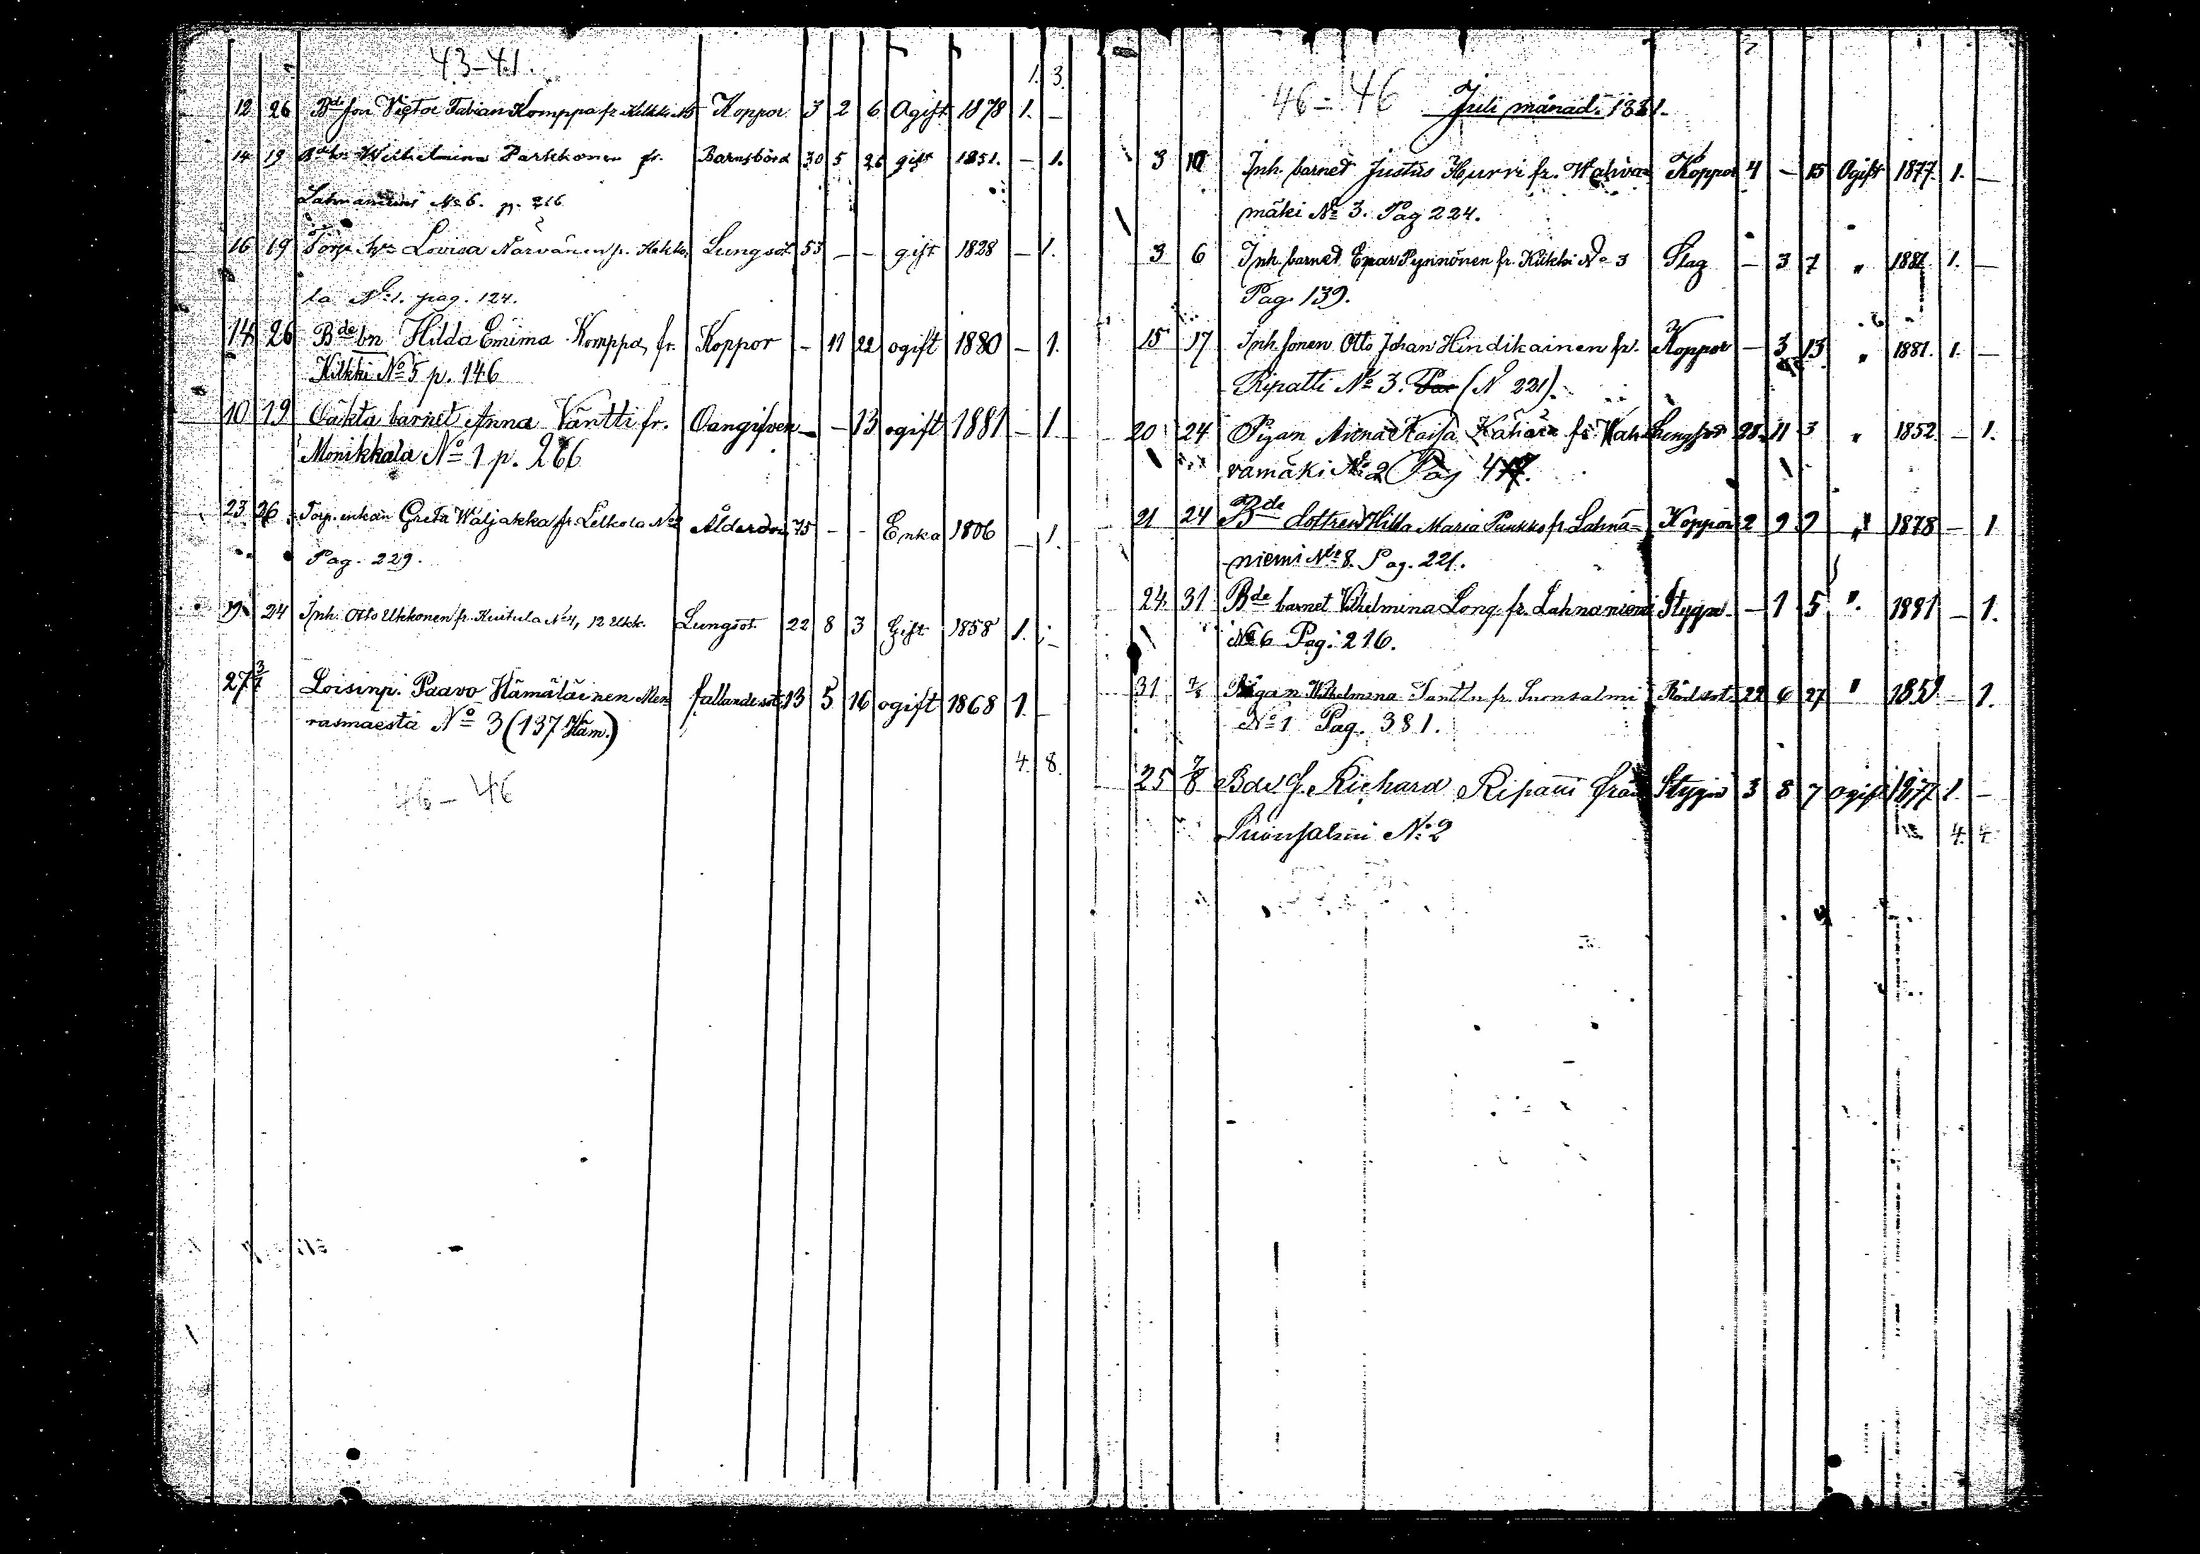 43-41.
1. 3.
12 26 Bde son Victor Fabian Komppa fr. Kilkki No 5 Koppor 3 2 6 Ogift 1878 1. –
14 19 Bde hu Wilhelmina Parkkonen fr. Barnsbörd 30 5 26 gift 1851. – 1.
Lahnaniemi No 6. p. 216
16 19 Torp. hu Lovisa Närvänen fr. Lungsot 53 – – gift 1828 – 1.
la No 1. pag. 124.
14 26 Bde bn Hilda Emima Komppa, fr. Koppor – 11 22 ogift 1880 – 1.
Kilkki No 5 p. 146
10 19 Oäkta barnet Anna Väntti fr. Oangifven – – 13 ogift 1881 – 1
Monikkala No 1 p. 266
23 26 Torp. enkan Greta Waljakka fr. Lelkola No 2 Ålderdom 75 – – Enka 1806 – 1.
Pag. 229.
19 24 Inh. Otto Ukkonen fr. Kuitula No 4, 12 Ukk. Lungsot. 22 8 3 Gift 1858 1. –
27 3/7 Loisinp. Paavo Hämäläinen Mon fallandesot 13 5 16 ogift 1868 1. –
rasmaesta No 3 (137 Häm.)
4. 8.
46-46
46-46 Juli månad. 1881.
3 10 Inh. barnet Justus Hurri fr. Wahva= Koppor 4 – 15 Ogift 1877. 1. –
mäki No 3. Pag 224.
3 6 Inh. barnet Enar Pynnönen fr. Kilkki No 3 Slag – 3 7 " 1881. 1. –
Pag. 139.
15 17 Inh. sonen Otto Johan Hindikainen fr. Koppor – 3 13 " 1881. 1. –
Ripatti No 3. Pag (N 231).
20 24 Pigan Anna Kaisa Kähäri fr. Wah Lungsot 28 11 3 " 1852 – 1.
vamäki No 2 Pag
21 24 Bde dottren Hilda Maria Pukko fr. Lahna= Koppor 2 9 9 " 1878 – 1
niemi No 8. Pag. 221.
24. 31 Bde barnet Vilhelmina Long fr. Lahnaniemi Stygn. – 1 5 " 1881 – 1.
No 6 Pag. 216.
31 7/8 Pigan Wilhelmina Santtu fr. Suonsalmi Rödsot. 22 6 27 " 1859 – 1.
No 1 Pag. 381.
25 7/8 Bde s. Richard Ripatti från Stygn 3 8 7 ogift 1877 1. –
Suonsalmi No 2
4. 4.